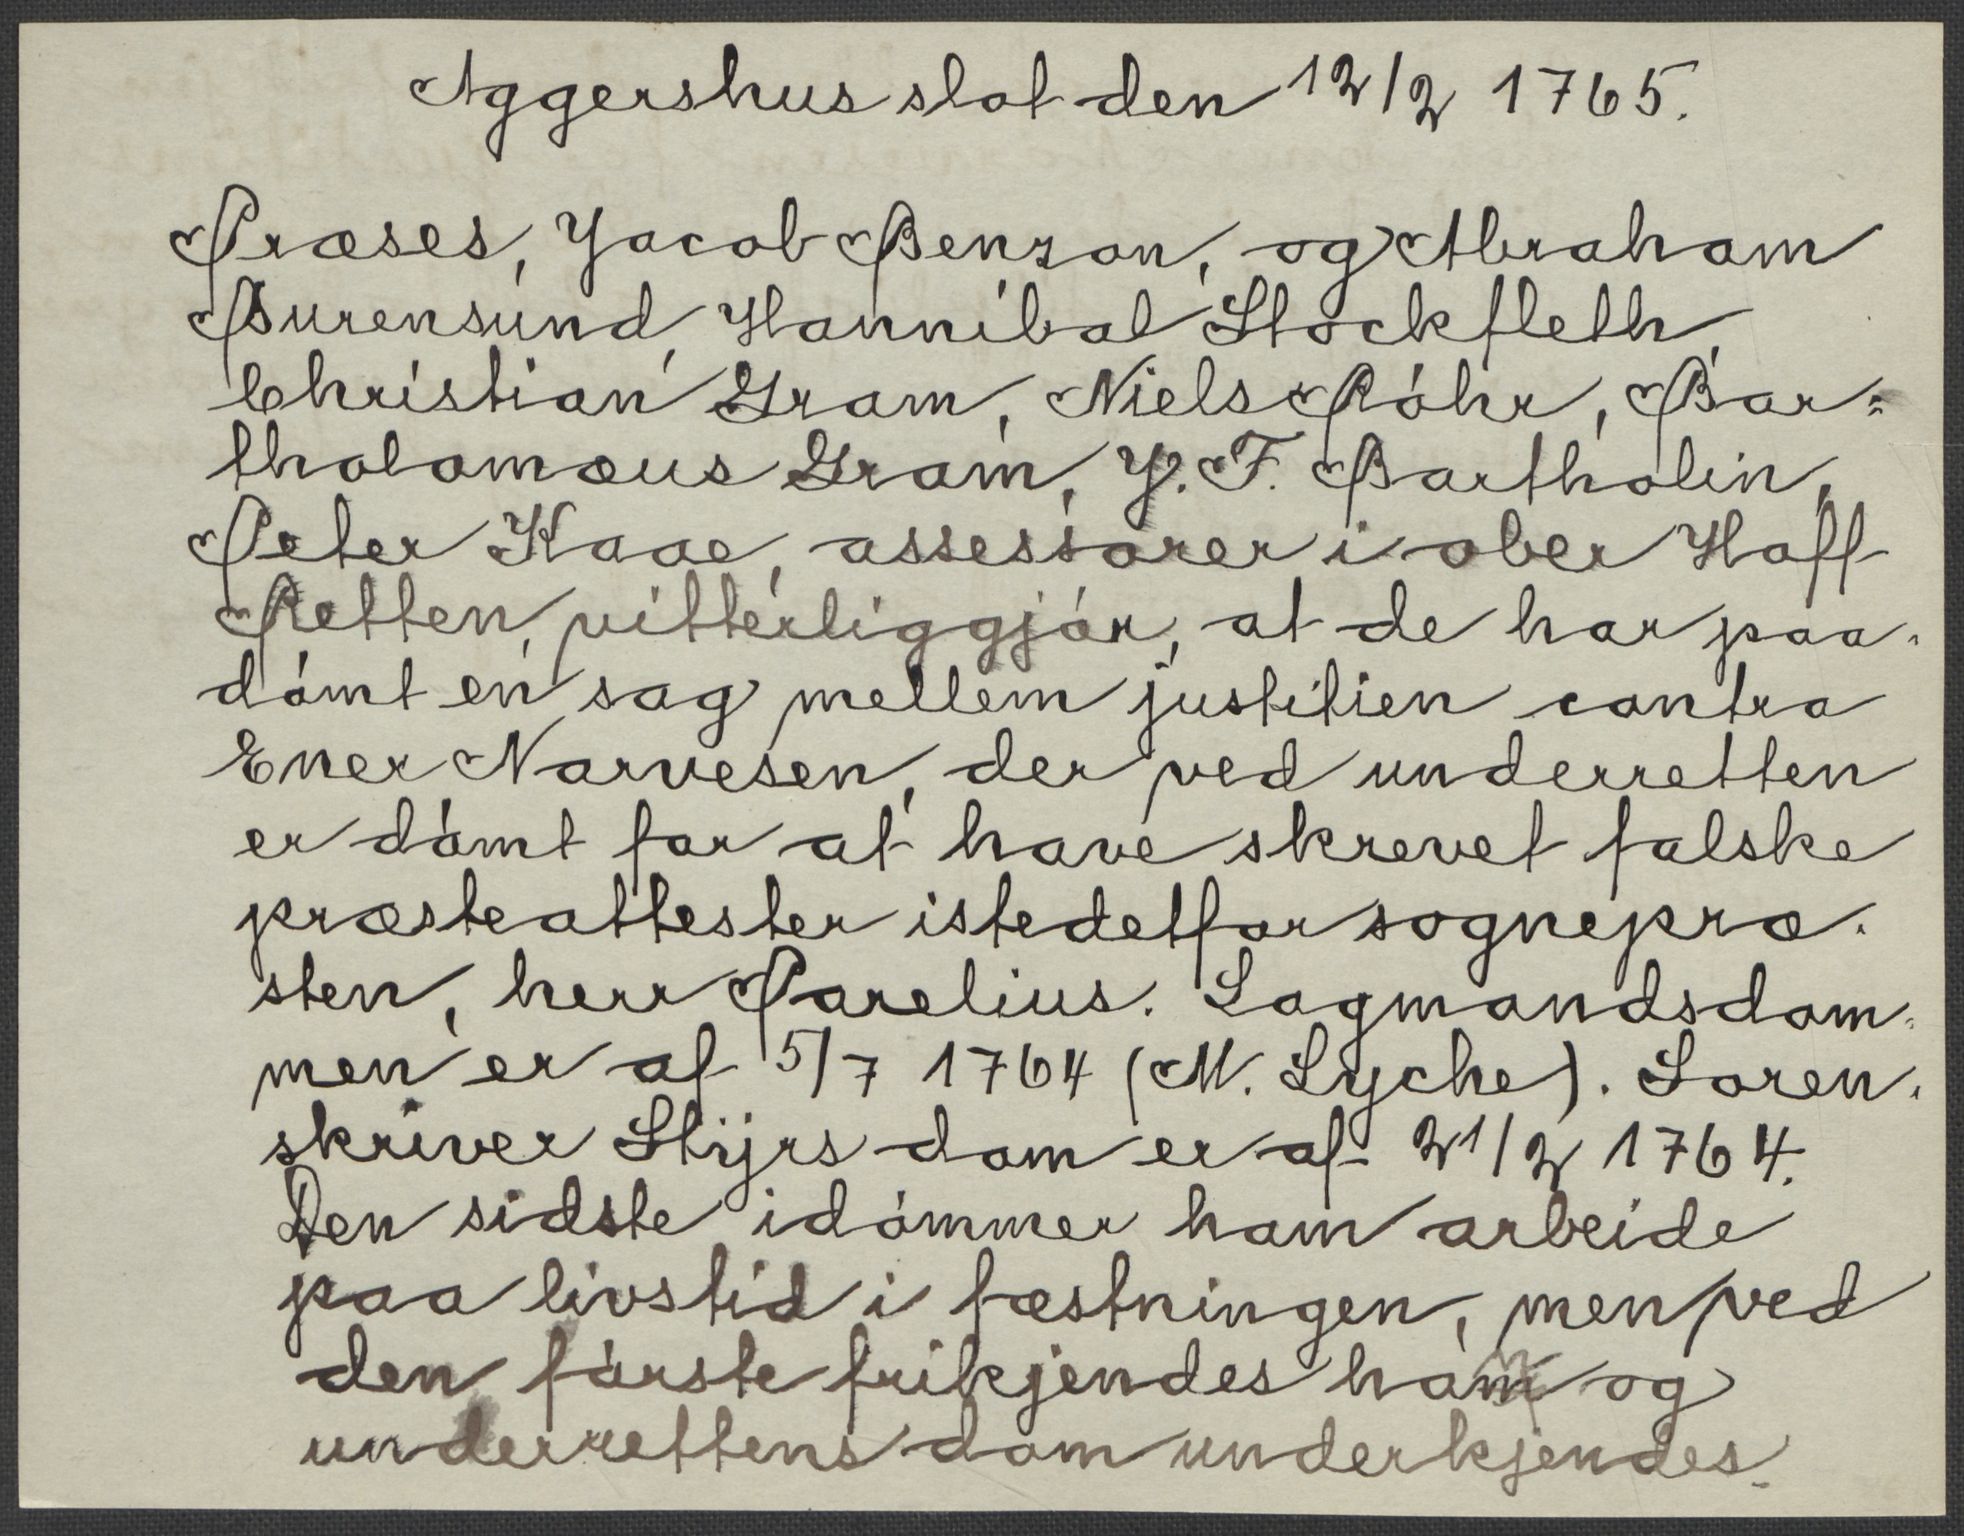 Aggershus slot den 12/2 1765.
Præses, Jacob Benzon, og Abraham
Burensund, Hannibal Stockfleth,
Christian Gram, Niels Röhr, Bar=
tholomæus Gram, J. F. Bartholin,
Peter Kaae, assessorer i ober Hoff
Retten, vitterliggjör, at de har paa-
dömt en sag mellem justitien contra
Ener Narvesen, der ved underretten
er dömt for at have skrevet falske
præsteattester istedetfor sognepræ-
sten, herr Parelius. Lagmandsdom-
men er af 5/7 1764 (M. Lyche). Soren-
skriver Stijrs dom er af 21/2 1764.
Den sidste idömmer ham arbeide
paa livstid i fæstningen, men ved
den förste frikjendes han og
underrettens dom underkjendes.